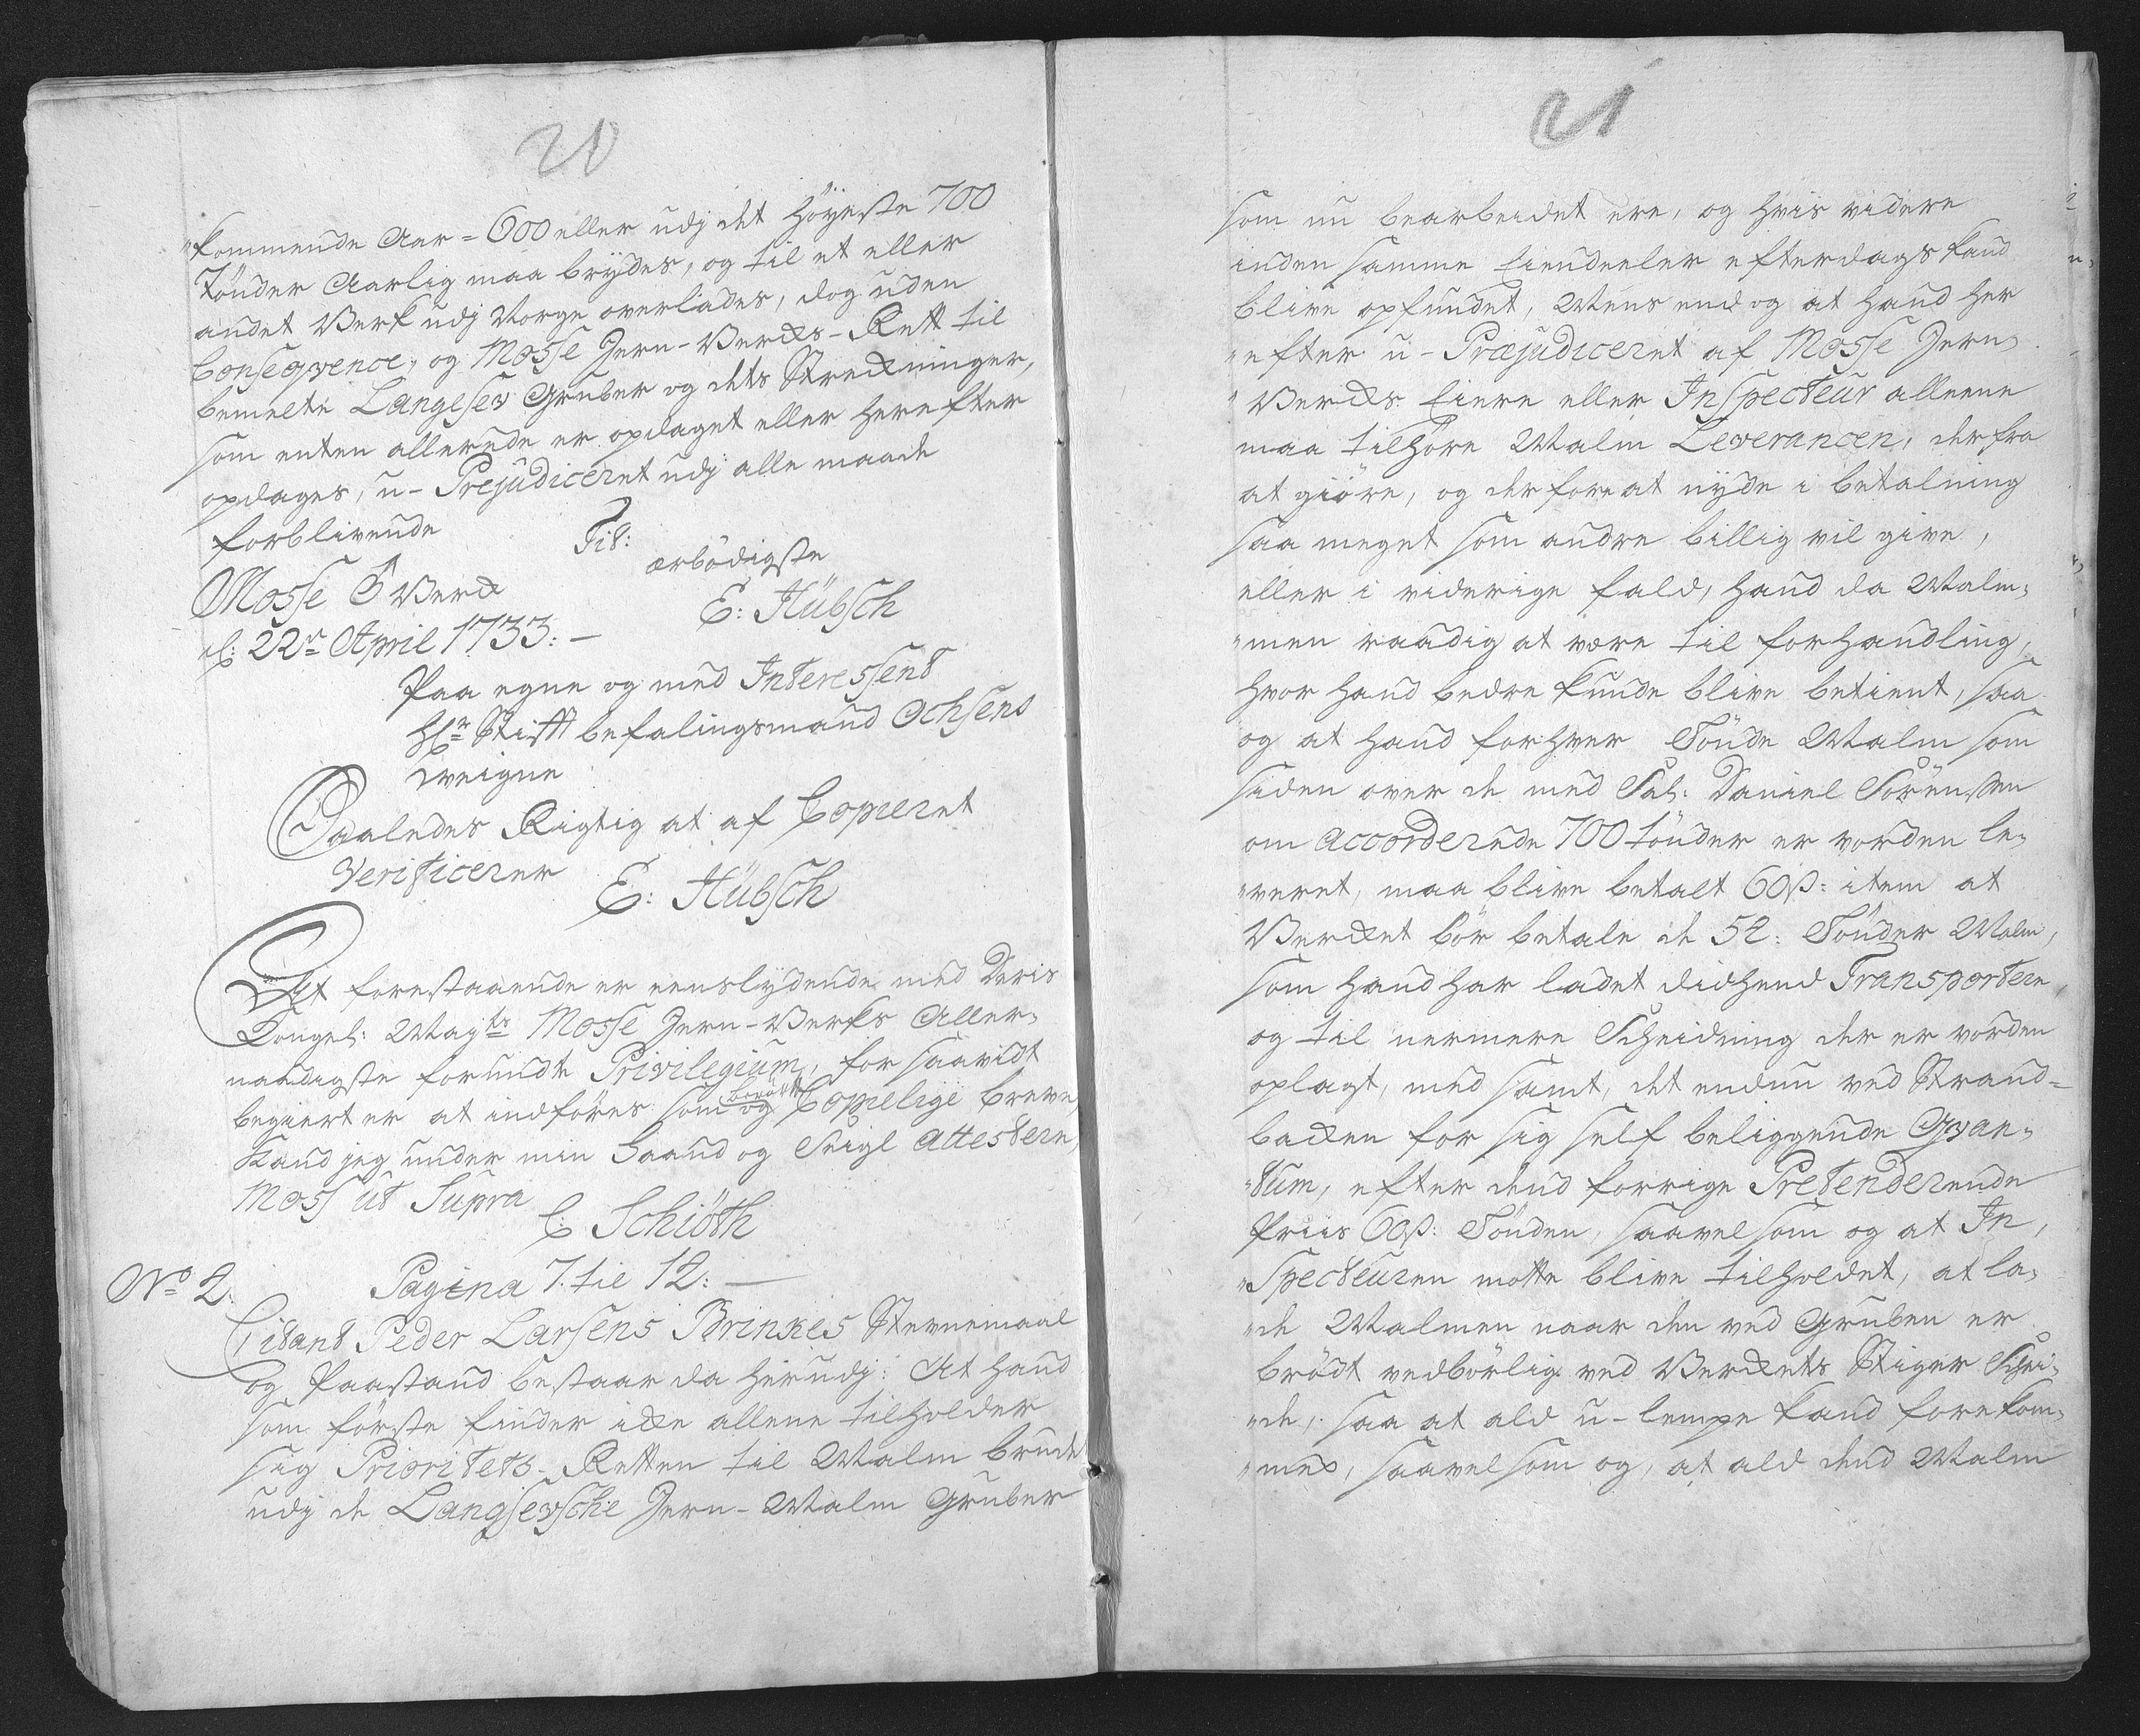 20
"kommende Aar = 600 eller udj det höyeste 700
Tönder Aarlig maa brydes, og til et eller
andet Verk udj Norge overlades, dog uden
Conseqvence, og Mosse Jern-Verchs-Rett til
bemelte Langesev Gruber og dets Strechninger,
som enten allerede er opdaget eller herefter
opdages, u-Prejudiceret udj alle maade
forblivende
Tit:
ærbödigste
Mosse J Verch
E: Hübsch
d: 22n April 1733: —
Paa egne og med Interessent
Hr Stiftbefalingsmand Ochsens
vegne
Saaledes Rigtig at af Copieret
Verificerer
E: Hübsch
At forestaaende er eenslydende med Deris
Kongel: Mayts Mosse Jern-Verks Aller,
naadigste forundte Privilegium, for saavidt
begiert er at indföres som og berörte Copielige breve,
Kand jeg under min Haand og Seigl Attestere,
Moss ut Supra
C: Schiöth
No 2.
Pagina 7. til 12: —
Citant Peder Larsens Brinkes Stevnemaal
og Paastand bestaar da herudj: At hand
som förste finder icke allene tilholder
sig Prioritets-Retten til Malm brudet
udj de Langsevsche Jern-Malm Gruber
21
som nu bearbeidet ere, og hvis videre
inden samme Eiendeeler efterdags kand
blive opfundet, Mens end og at hand her
"efter u-Præjudiceret af Mosse Jern,
"Verchs Eiere eller Inspecteur alleene
maa tilhöre Malm Leverancen, der fra
at giöre, og derfore at nyde i betalning
saa meget som andre billig vil give,
eller i viderige fald, hand da Malm,
"men raadig at være til forhandling,
hvor hand bedre kunde blive betient, saa
og at hand for hver Tönde Malm som
siden over de med Sal: Daniel Sörensen
om accorderede 700 tönder er vorden le,
"veret, maa blive betalt 60 ß: item at
Verchet bör betale de 52: Tönder Malm,
som hand har ladet did hend Transportere,
og til nermere Scheidning der er vorden
oplagt, med samt, det endnu ved Strand=
backen for sig self beliggende Qvan,
"tum, efter dend forrige Pretenderende
Priis 60 ß: Tönden, saavelsom og at In,
"Specteuren motte blive tilholdet, at la,
"de Malmen naar den ved Gruben er
brödt vedbörlig ved Verchets Stiger Schei,
"de, saa at ald u-lempe kand forekom,
"mes, saavelsom og, at ald dend Malm